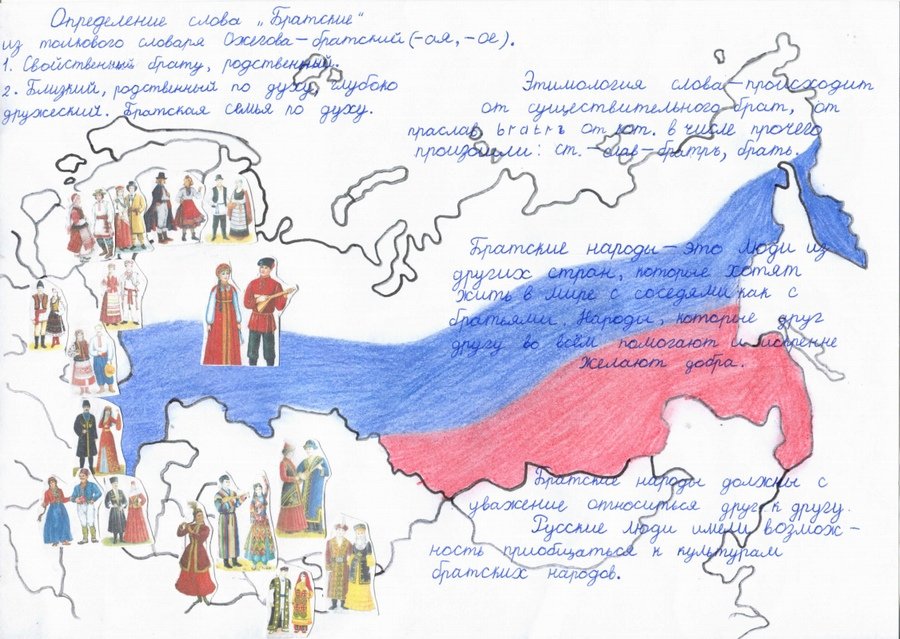 Определение слова „Братские"
из толкового словаря Ожегова-братский (-ая, -ое).
1. Свойственный брату, родственный.
2. Близкий, родственный по духу, глубоко
дружеский. Братская семья по духу.
Этимология слова - происходит
от существительного брат, от
праслав bratrъ от кот. в числе прочего
произошли: ст.-слав-братръ, братъ.
Братские народы - это люди из
других стран, которые хотят
жить в мире с соседями как с
братьями. Народы, которые друг
другу во всём помогают и искренне
желают добра.
Братские народы должны с
уважение относиться друг к другу.
Русские люди имели возмож-
ность приобщаться к культурам
братских народов.